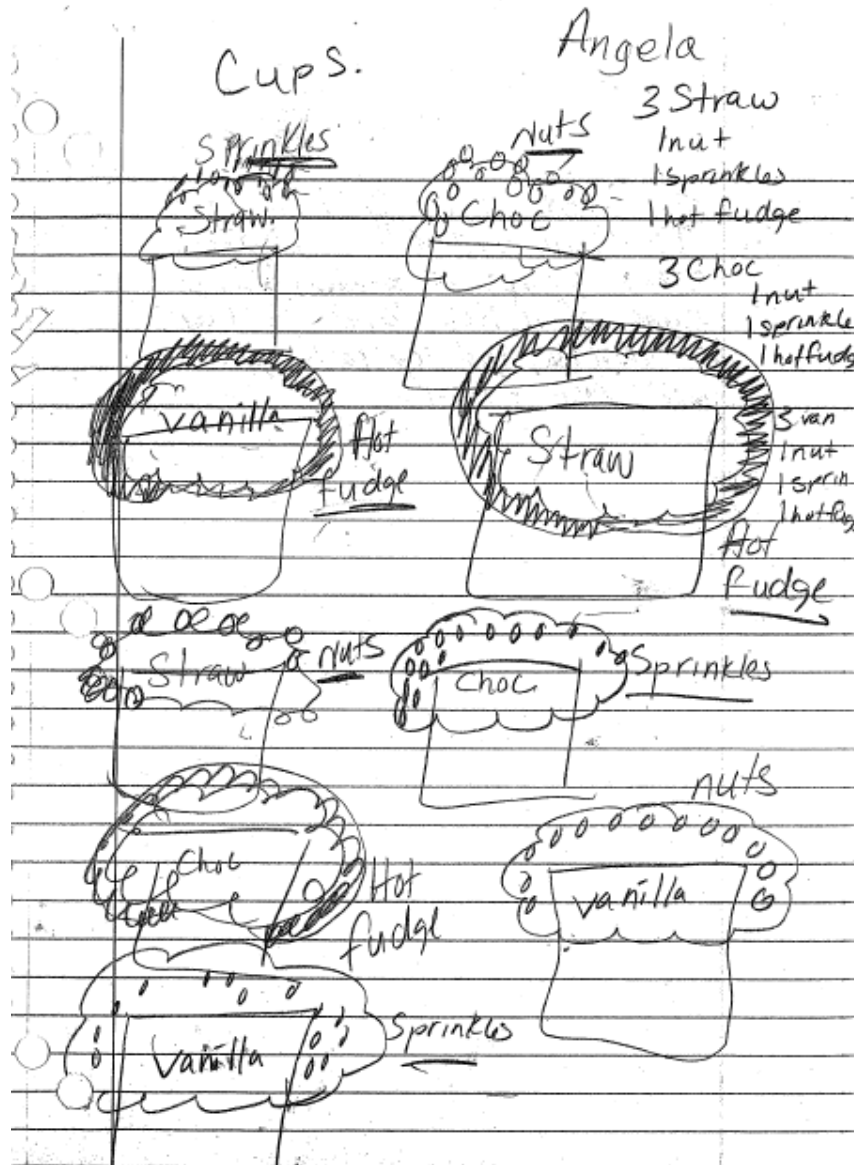 Cups.
Angela
3 Straw
1 nut
1 sprinkles
1 hot fudge
3 Choc
1 nut
1 sprinkle
1 hot fudg
3 van
1 nut
1 sprin
Sprinkles
Straw.
Nuts
Choc
Vanilla
Hot
fudge
Straw
Hot
fudge
Straw
Nuts
Choc
Sprinkles
Choc
Hot
fudge
nuts
vanilla
Vanilla
Sprinkles